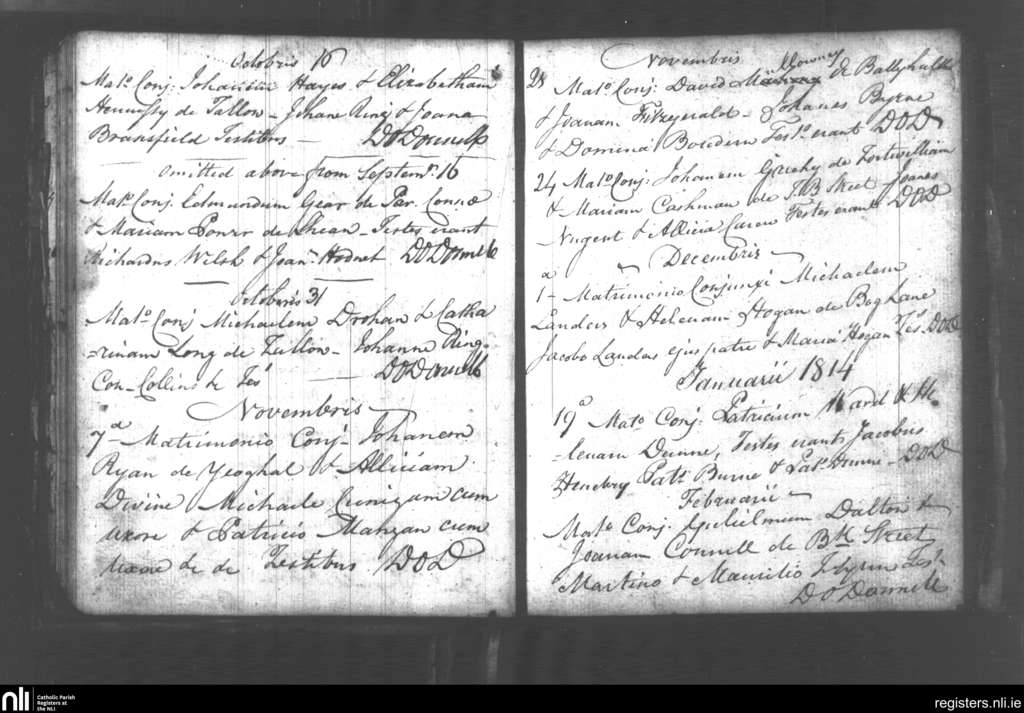 Octobris 16
Mato. Conj: Johannem Hayes & Elizabetham
Hennessy de Tallow - Johane Ring & Joana
Bransfield Testibus — DODonnell
Omitted above from Septemr. 16
Mato. Conj. Edmundum Gear de Par. Connæ
& Mariam Power de - Testes erant
Richardus Welsh & Joana. Hodnet DODonnell
Octobris 31
Mato. Conj Michaelem Drohan & Catha
=rinam Long de Tallow - Johanne Ring
Con - Collins & Tes — DODonnell
Novembris
7a - Matrimonio Conj - Johanem
Ryan de Yeoghal & Alliciam
Divine Michaele cum
uxore & Patricio Mangan cum
uxore &c de Testibus DOD
Novembris
Downey
28 Mato. Conj: David de
& Joanam Fitzgerald - Johanes Byrne
& Domina Bowdern Testes. erant DOD
24 Mato. Conj. Johanem Greehy de Fortwilliam
& Mariam Cashman de T.B Street Joanes
Nugent & Allicia Carew Testes erant DOD
Decembris
a
1 - Matrimonio Conjunxi Michaelem
Landers & Helenam Hogan de Bog Lane
Jacobo Landers ejus patre & Maria Hogan Ts. DOD
Januarii 1814
19o Mato Conj: Patricium Ward & He
=lenam Dunne, Testes erant Jacobus
Henebry Patt. Burne & Patt. Dunne - DOD
Februarii
Mato. Conj. Gulielmum Dalton &
Joanam Connell de Bk Street
Martino & Mauritio Flynn Tes.
DODonnell
nli
Catholic Parish
Registers at
the NLI
registers.nli.ie